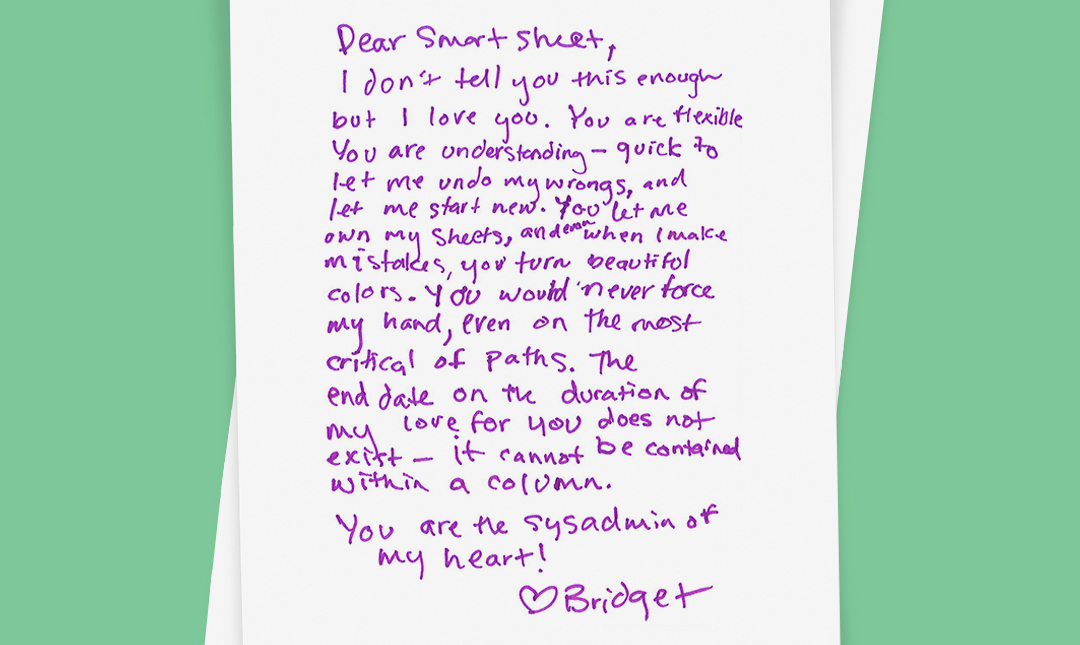 Dear Smartsheet,
I don't tell you this enough
but I love you. You are flexible
You are understanding – quick to
let me undo my wrongs, and
let me start new. You let me
own my sheets, and even when I make
mistakes, you turn beautiful
colors. You would never force
my hand, even on the most
critical of paths. The
end date on the duration of
my love for you does not
exist – it cannot be contained
within a column.
You are the sysadmin of
my heart!
♡ Bridget